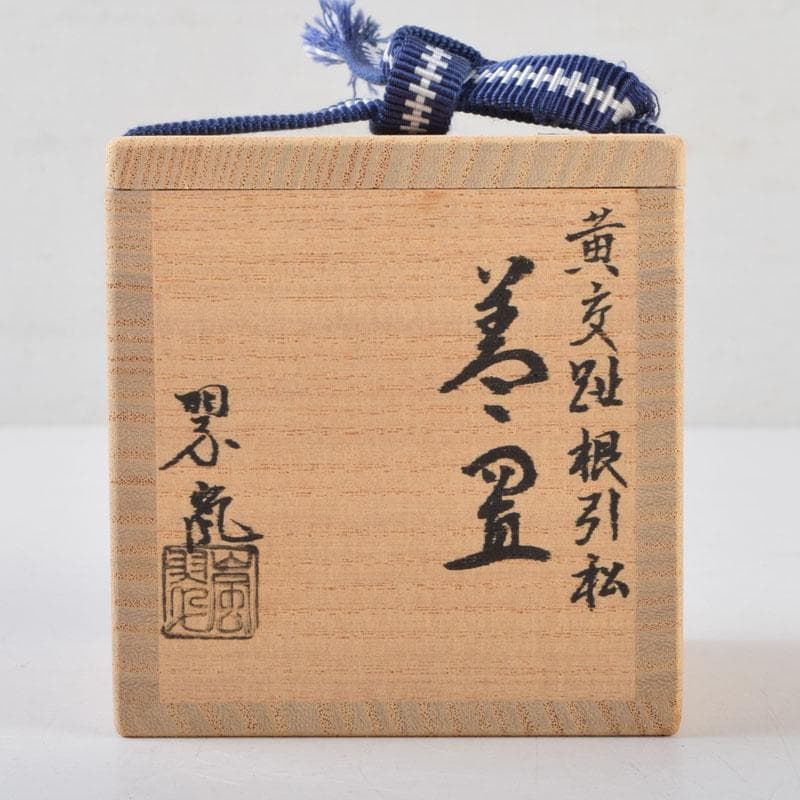 黄交趾根引松
蓋置
翠嵐